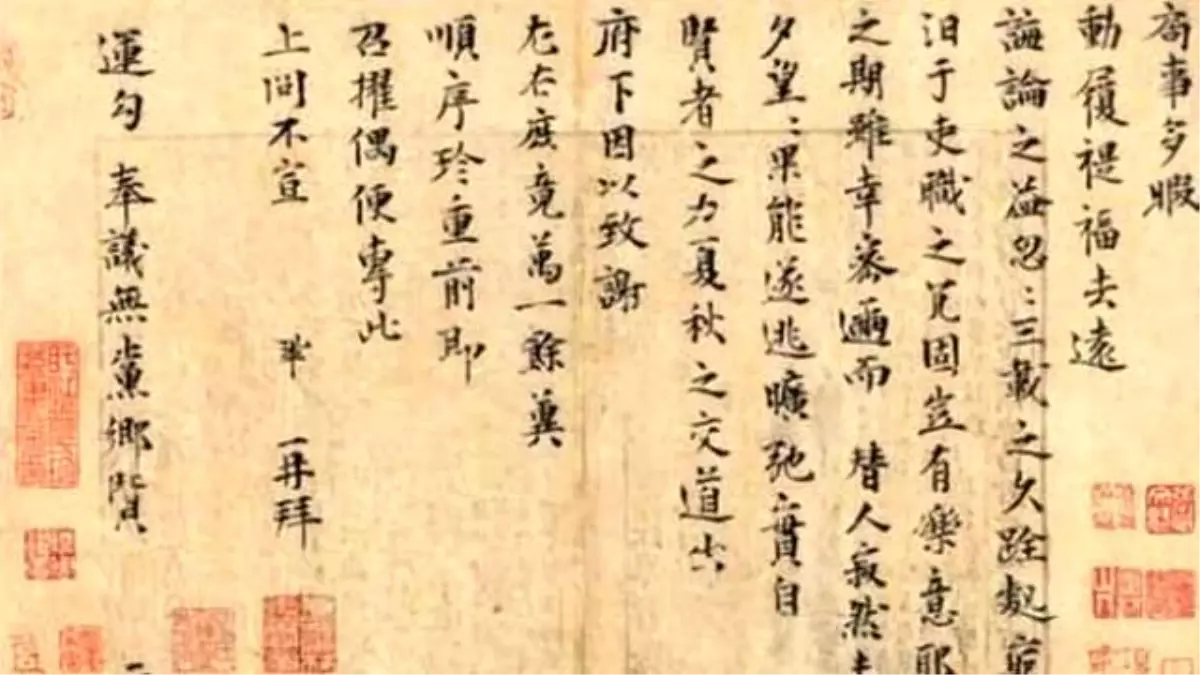 局事多暇
動履禔福去遠
誨論之益忽〻三載之久跧處窮
汩于吏職之冗固豈有樂意耶
之期雖幸密邇而 替人寂然未
夕望〻果能遂逃曠弛實自
賢者之力夏秋之交道出
府下因以致謝
左右庶竟萬一餘冀
順序珍重前即
召擢偶便專此
上問不宣 鞏 再拜
運勾 奉議無黨鄉賢 二